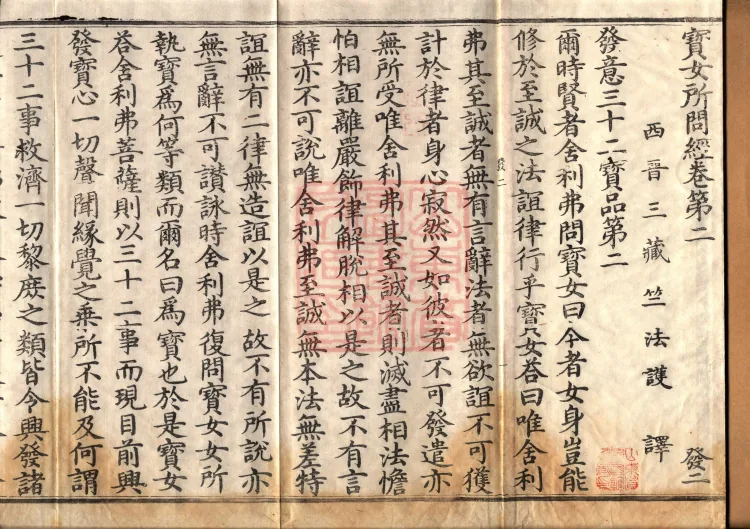 寶女所問經卷第二 發二
西晉三藏竺法護 譯
發意三十二寶品第二
爾時賢者舍利弗問寶女曰今者女身豈能
修於至誠之法誼律行乎寶女荅曰唯舍利
弗其至誠者無有言辭法者無欲誼不可獲
發二
計於律者身心寂然又如彼者不可發遣亦
無所受唯舍利弗其至誠者則滅盡相法憺
怕相誼離嚴飾律解脫相以是之故不有言
辭亦不可說唯舍利弗至誠無本法無差特
誼無有二律無造誼以是之故不有所說亦
無言辭不可讚詠時舍利弗復問寶女女所
執寶爲何等類而爾名曰爲寶也於是寶女
荅舍利弗菩薩則以三十二事而現目前興
發寶心一切聲聞緣覺之乘所不能及何謂
三十二事救濟一切黎庶之類皆令興發諸